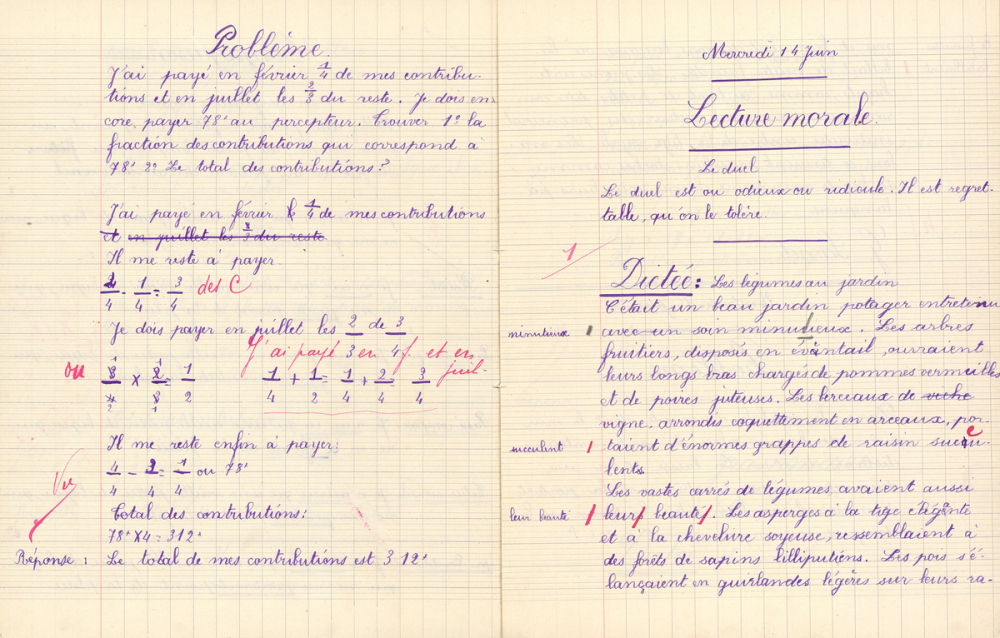 Problème.
J'ai payé en février 1/4 de mes contribu-
tions et en juillet les 2/3 du reste. Je dois en-
core payer 78f au percepteur. Trouver 1º la
fraction des contributions qui correspond à
78f 2º Le total des contributions?
J'ai payé en février 1/4 de mes contributions
et en juillet les 2/3 du reste
Il me reste à payer.
4/4 - 1/4 = 3/4 des C
Je dois payer en juillet les 2/3 de 3/4
J'ai payé 3 en 4 f. et en
juil.
ou 3/4 × 2/3 = 1/2 1/4 + 1/2 = 1/4 + 2/4 3/4
Il me reste enfin à payer:
4/4 - 3/4 = 1/4 ou 78f
Vu
Total des contributions:
78f × 4 = 312f
Réponse : Le total de mes contributions est 312f
Mercredi 14 Juin
Lecture morale.
Le duel
Le duel est ou odieux ou ridicule. Il est regret-
table, qu'on le tolère.
1
Dictée: Les légumes au jardin
C'était un beau jardin potager entretenu
minutieux avec un soin minutieux. Les arbres
fruitiers, disposés en évantail, ouvraient
leurs longs bras chargés de pommes vermeilles
et de poires juteuses. Les berceaux de viche
vigne. arrondis coquettement en arceaux, por-
succulent taient d'énormes grappes de raisin succu-
lents.
Les vastes carrés de légumes, avaient aussi
leur beauté leurs beautés. Les asperges à la tige élégante
et à la chevelure soyeuse, ressemblaient à
des forêts de sapins lilliputiens. Les pois s'é-
lançaient en guirlandes légères sur leurs ra-